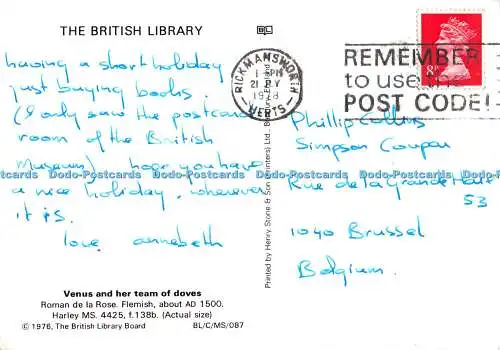 THE BRITISH LIBRARY
BL
having a short holiday
just buying books.
(I only saw the postcard
room of the British
Museum) hope you have
a nice holiday, wherever
it is.
love annabeth
Venus and her team of doves
Roman de la Rose. Flemish, about AD 1500.
Harley MS. 4425, f.138b. (Actual size)
© 1976, The British Library Board BL/C/MS/087
Printed by Henry Stone & Son (Printers) Ltd., England
RICKMANSWORTH
PM
1978
HERTS
REMEMBER
to use the
POST CODE!
Phillip Collins
Simpson Coupar
Rue de la Grande Haie
53
1040 Brussel
Belgium
Dodo-Postcards Dodo-Postcards Dodo-Postcards Dodo-Postcards Dodo-Postcards Dodo-Postcards